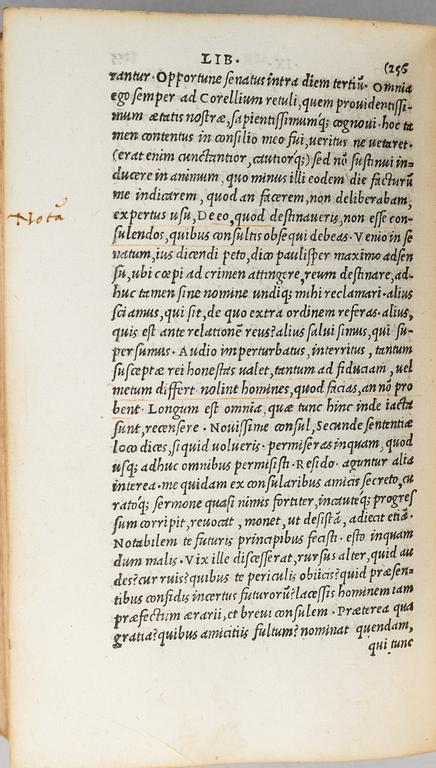 LIB. (256
rantur. Opportune senatus intra diem tertiũ. Omnia
ego semper ad Corellium retuli, quem prouidentissi-
mum ætatis nostræ, sapientissimumq; cognoui. hoc ta
men contentus in consilio meo fui, ueritus ne uetaret.
(erat enim cunctantior, cautiorq;) sed nõ sustinui in-
ducere in animum, quo minus illi eodem die facturũ
me indicarem, quod an facerem, non deliberabam,
expertus usu, De eo, quod destinaueris, non esse con-
Notã
sulendos, quibus consultis obsequi debeas. Venio in se
natum, ius dicendi peto, dico paulisper maximo adsen
su, ubi cœpi ad crimen attingere, reum destinare, ad-
huc tamen sine nomine undiq; mihi reclamari. alius
sciamus, qui sit, de quo extra ordinem referas. alius,
quis est ante relationẽ reus? alius salui simus, qui su-
persumus. Audio imperturbatus, interritus, tantum
susceptæ rei honestas ualet, tantum ad fiduciam, uel
metum differt nolint homines, quod facias, an nõ pro
bent. Longum est omnia, quæ tunc hinc inde iacta
sunt, recensere. Nouissime consul, Secunde sententiæ
loco dices, si quid uolueris. permiseras inquam, quod
usq; adhuc omnibus permisisti. Resido. aguntur alia
interea. me quidam ex consularibus amicis secreto, cu
ratoq; sermone quasi nimis fortiter, incauteq; progres
sum corripit, reuocat, monet, ut desistã, adiecit etiã.
Notabilem te futuris principibus fecisti. esto inquam
dum malis. Vix ille discesserat, rursus alter, quid au
des? cur ruis? quibus te periculis obiicis? quid præsen-
tibus confidis incertus futurorũ? lacessis hominem iam
præfectum ærarii, et breui consulem. Præterea qua
gratia? quibus amicitiis fultum? nominat quendam,
qui tunc